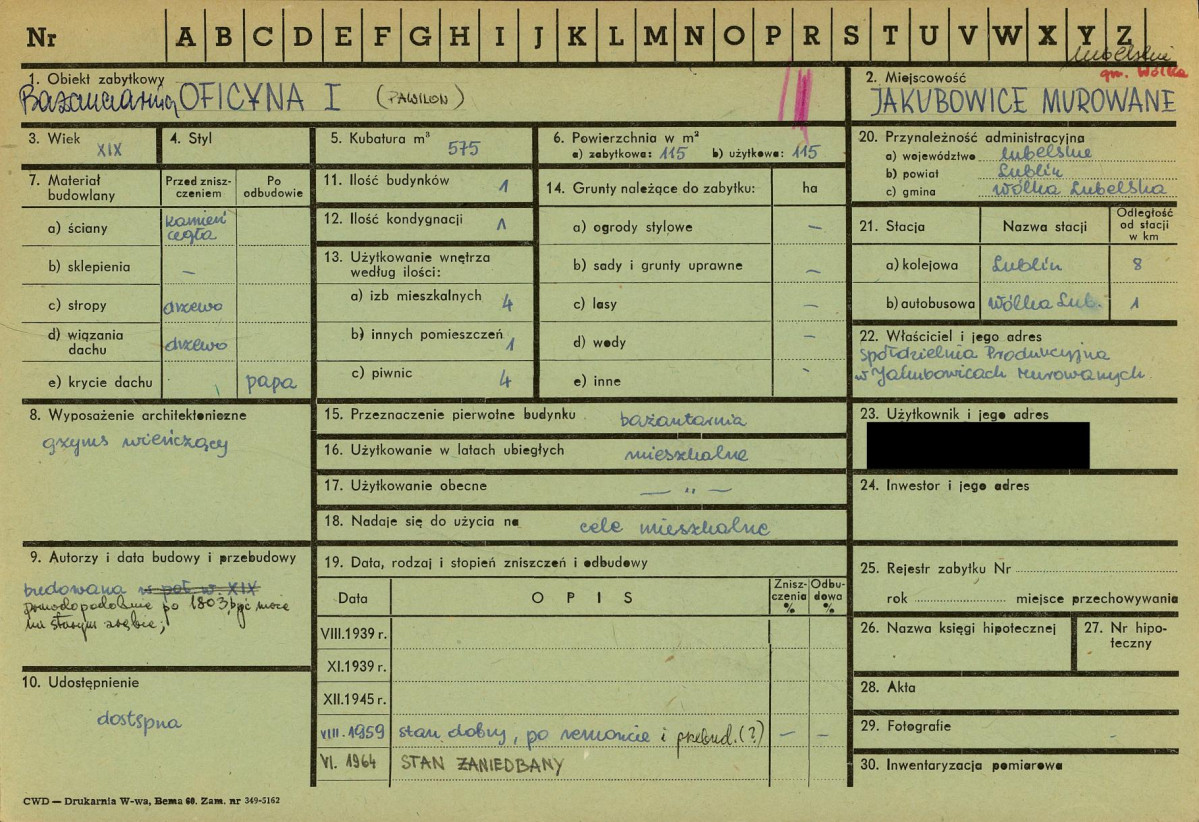 Nr A B C D E F G H I J K L M N O P R S T U V W X Y Z
lubelskie
gm. Wólka
1. Obiekt zabytkowy
Bażanciarnia OFICYNA I (PAWILON)
2. Miejscowość
JAKUBOWICE MUROWANE
3. Wiek
XIX
4. Styl
5. Kubatura m³ 575
6. Powierzchnia w m²
a) zabytkowa: 115 b) użytkowa: 115
20. Przynależność administracyjna
a) województwo lubelskie
b) powiat Lublin
c) gmina Wólka Lubelska
7. Materiał budowlany
Przed zniszczeniem
Po odbudowie
a) ściany kamień cegła
b) sklepienia –
c) stropy drzewo
d) wiązania dachu drzewo
e) krycie dachu papa
11. Ilość budynków 1
12. Ilość kondygnacji 1
13. Użytkowanie wnętrza według ilości:
a) izb mieszkalnych 4
b) innych pomieszczeń 1
c) piwnic 4
14. Grunty należące do zabytku: ha
a) ogrody stylowe –
b) sady i grunty uprawne –
c) lasy –
d) wody –
e) inne -
21. Stacja Nazwa stacji Odległość od stacji w km
a) kolejowa Lublin 8
b) autobusowa Wólka Lub. 1
22. Właściciel i jego adres
Spółdzielnia Produkcyjna
w Jakubowicach Murowanych
8. Wyposażenie architektoniczne
gzyms wieńczący
15. Przeznaczenie pierwotne budynku bażantarnia
16. Użytkowanie w latach ubiegłych mieszkalne
17. Użytkowanie obecne — „ —
18. Nadaje się do użycia na cele mieszkalne
23. Użytkownik i jego adres
24. Inwestor i jego adres
9. Autorzy i data budowy i przebudowy
budowana w poł. w. XIX
prawdopodobnie po 1803, być może
na starym zrębie;
10. Udostępnienie
dostępna
19. Data, rodzaj i stopień zniszczeń i odbudowy
Data OPIS Zniszczenia % Odbudowa %
VIII.1939 r.
XI.1939 r.
XII.1945 r.
VIII.1959 stan dobry, po remoncie i przebud. (?) – –
VI. 1964 STAN ZANIEDBANY
25. Rejestr zabytku Nr
rok miejsce przechowywania
26. Nazwa księgi hipotecznej
27. Nr hipoteczny
28. Akta
29. Fotografie
30. Inwentaryzacja pomiarowa
CWD — Drukarnia W-wa, Bema 60. Zam. nr 349-5162